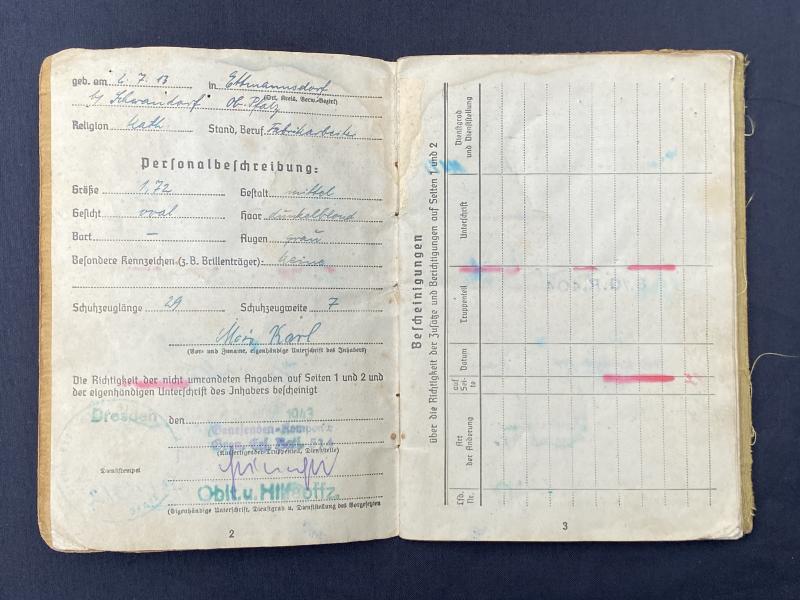 geb. am 2. 7. 13 in Ettmannsdorf
(Ort, Kreis, Verw.-Bezirk)
b/ Schwandorf Ob. Pfalz
Religion Kath Stand, Beruf Fabrikarbeiter
Personalbeschreibung:
Größe 1,72 Gestalt mittel
Gesicht oval Haar dunkelblond
Bart — Augen grau
Besondere Kennzeichen (z. B. Brillenträger): keine
Schuhzeuglänge 29 Schuhzeugweite 7
Karl
(Vor- und Zuname, eigenhändige Unterschrift des Inhabers)
Die Richtigkeit der nicht umrandeten Angaben auf Seiten 1 und 2 und
der eigenhändigen Unterschrift des Inhabers bescheinigt
Dresden den 1943
Genesenden-Komp
(Ausfertigender Truppenteil, Dienststelle)
Dienststempel
Oblt. u.
(Eigenhändige Unterschrift, Dienstgrad u. Dienststellung des Vorgesetzten
2
Bescheinigungen
über die Richtigkeit der Zusätze und Berichtigungen auf Seiten 1 und 2
Lfd. Nr.
Art der Änderung
auf Seite
Datum
Truppenteil
Unterschrift
Dienstgrad und Dienststellung
3